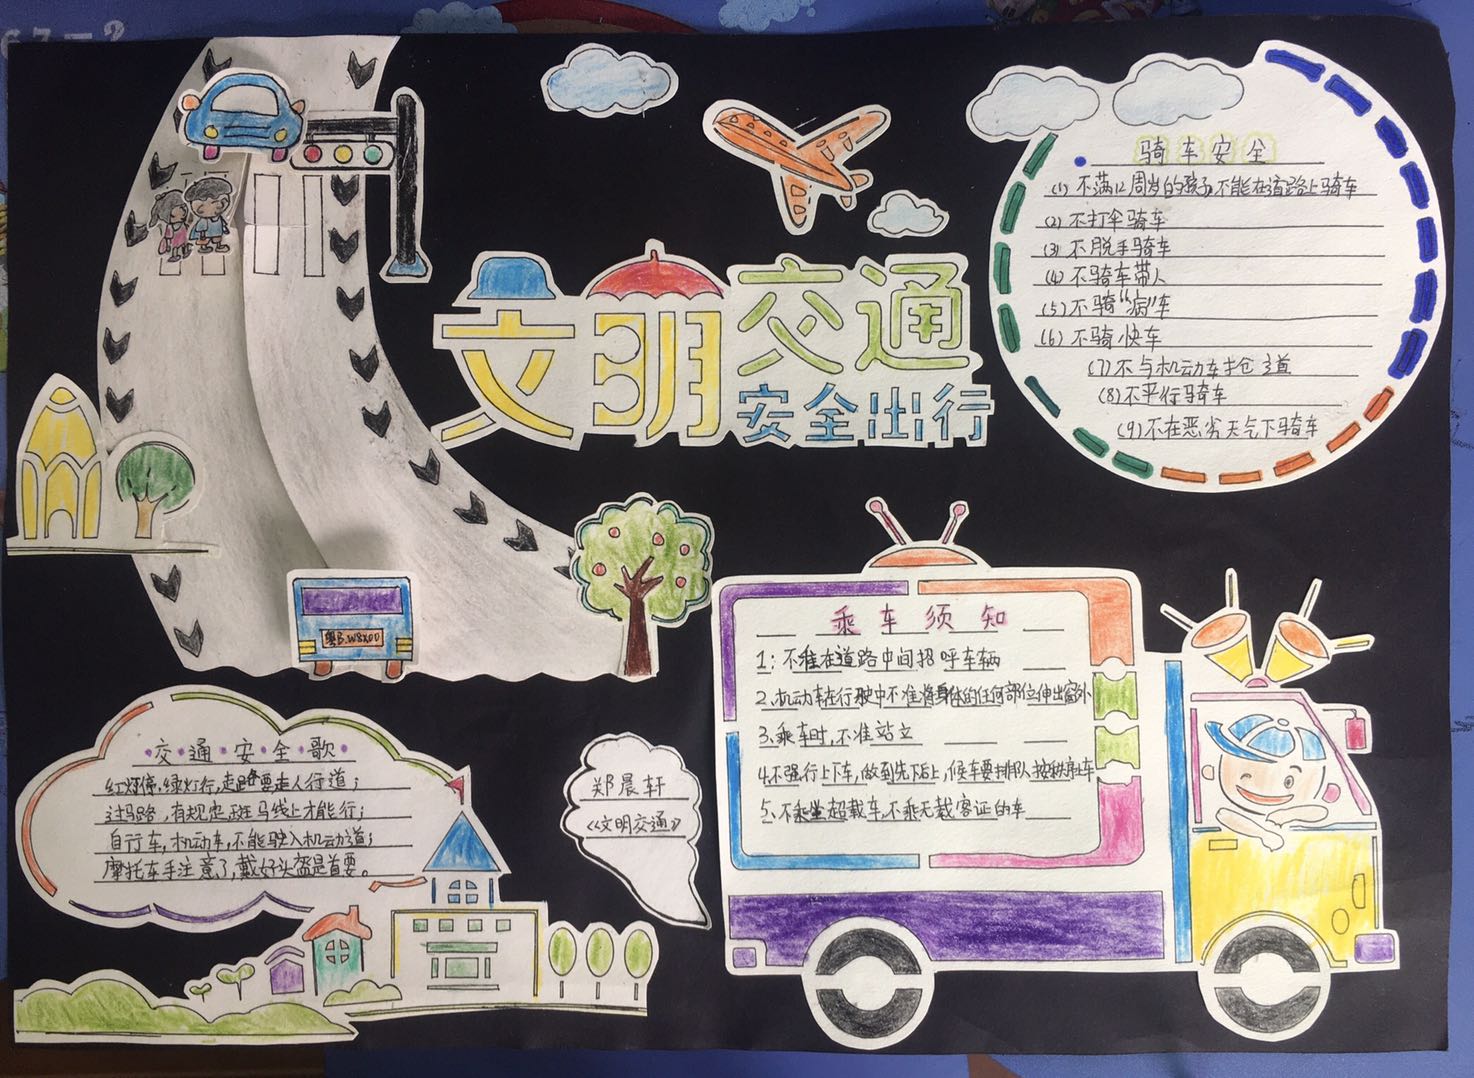 文明交通
安全出行
骑车安全
(1)不满12周岁的孩子,不能在道路上骑车
(2)不打伞骑车
(3)不脱手骑车
(4)不骑车带人
(5)不骑“病”车
(6)不骑快车
(7)不与机动车抢道
(8)不平行骑车
(9)不在恶劣天气下骑车
粤B.W8X00
乘车须知
1:不准在道路中间招呼车辆
2、机动车在行驶中不准将身体的任何部位伸出窗外
3、乘车时,不准站立
4、不强行上下车,做到先下后上,候车要排队按秩序上车
5、不乘坐超载车,不乘无载客证的车
交通安全歌
红灯停,绿灯行,走路要走人行道;
过马路,有规定,斑马线上才能行;
自行车,机动车,不能驶入机动道;
摩托车手注意了,戴好头盔是首要。
郑晨轩
《文明交通》